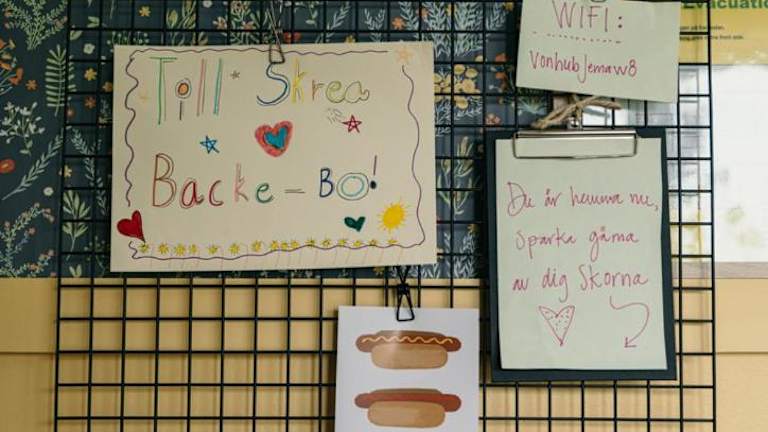 Till Skrea
Backe = BO!
WIFI:
vonhubjemaw8
Du är hemma nu,
sparka gärna
av dig skorna
Evacuation